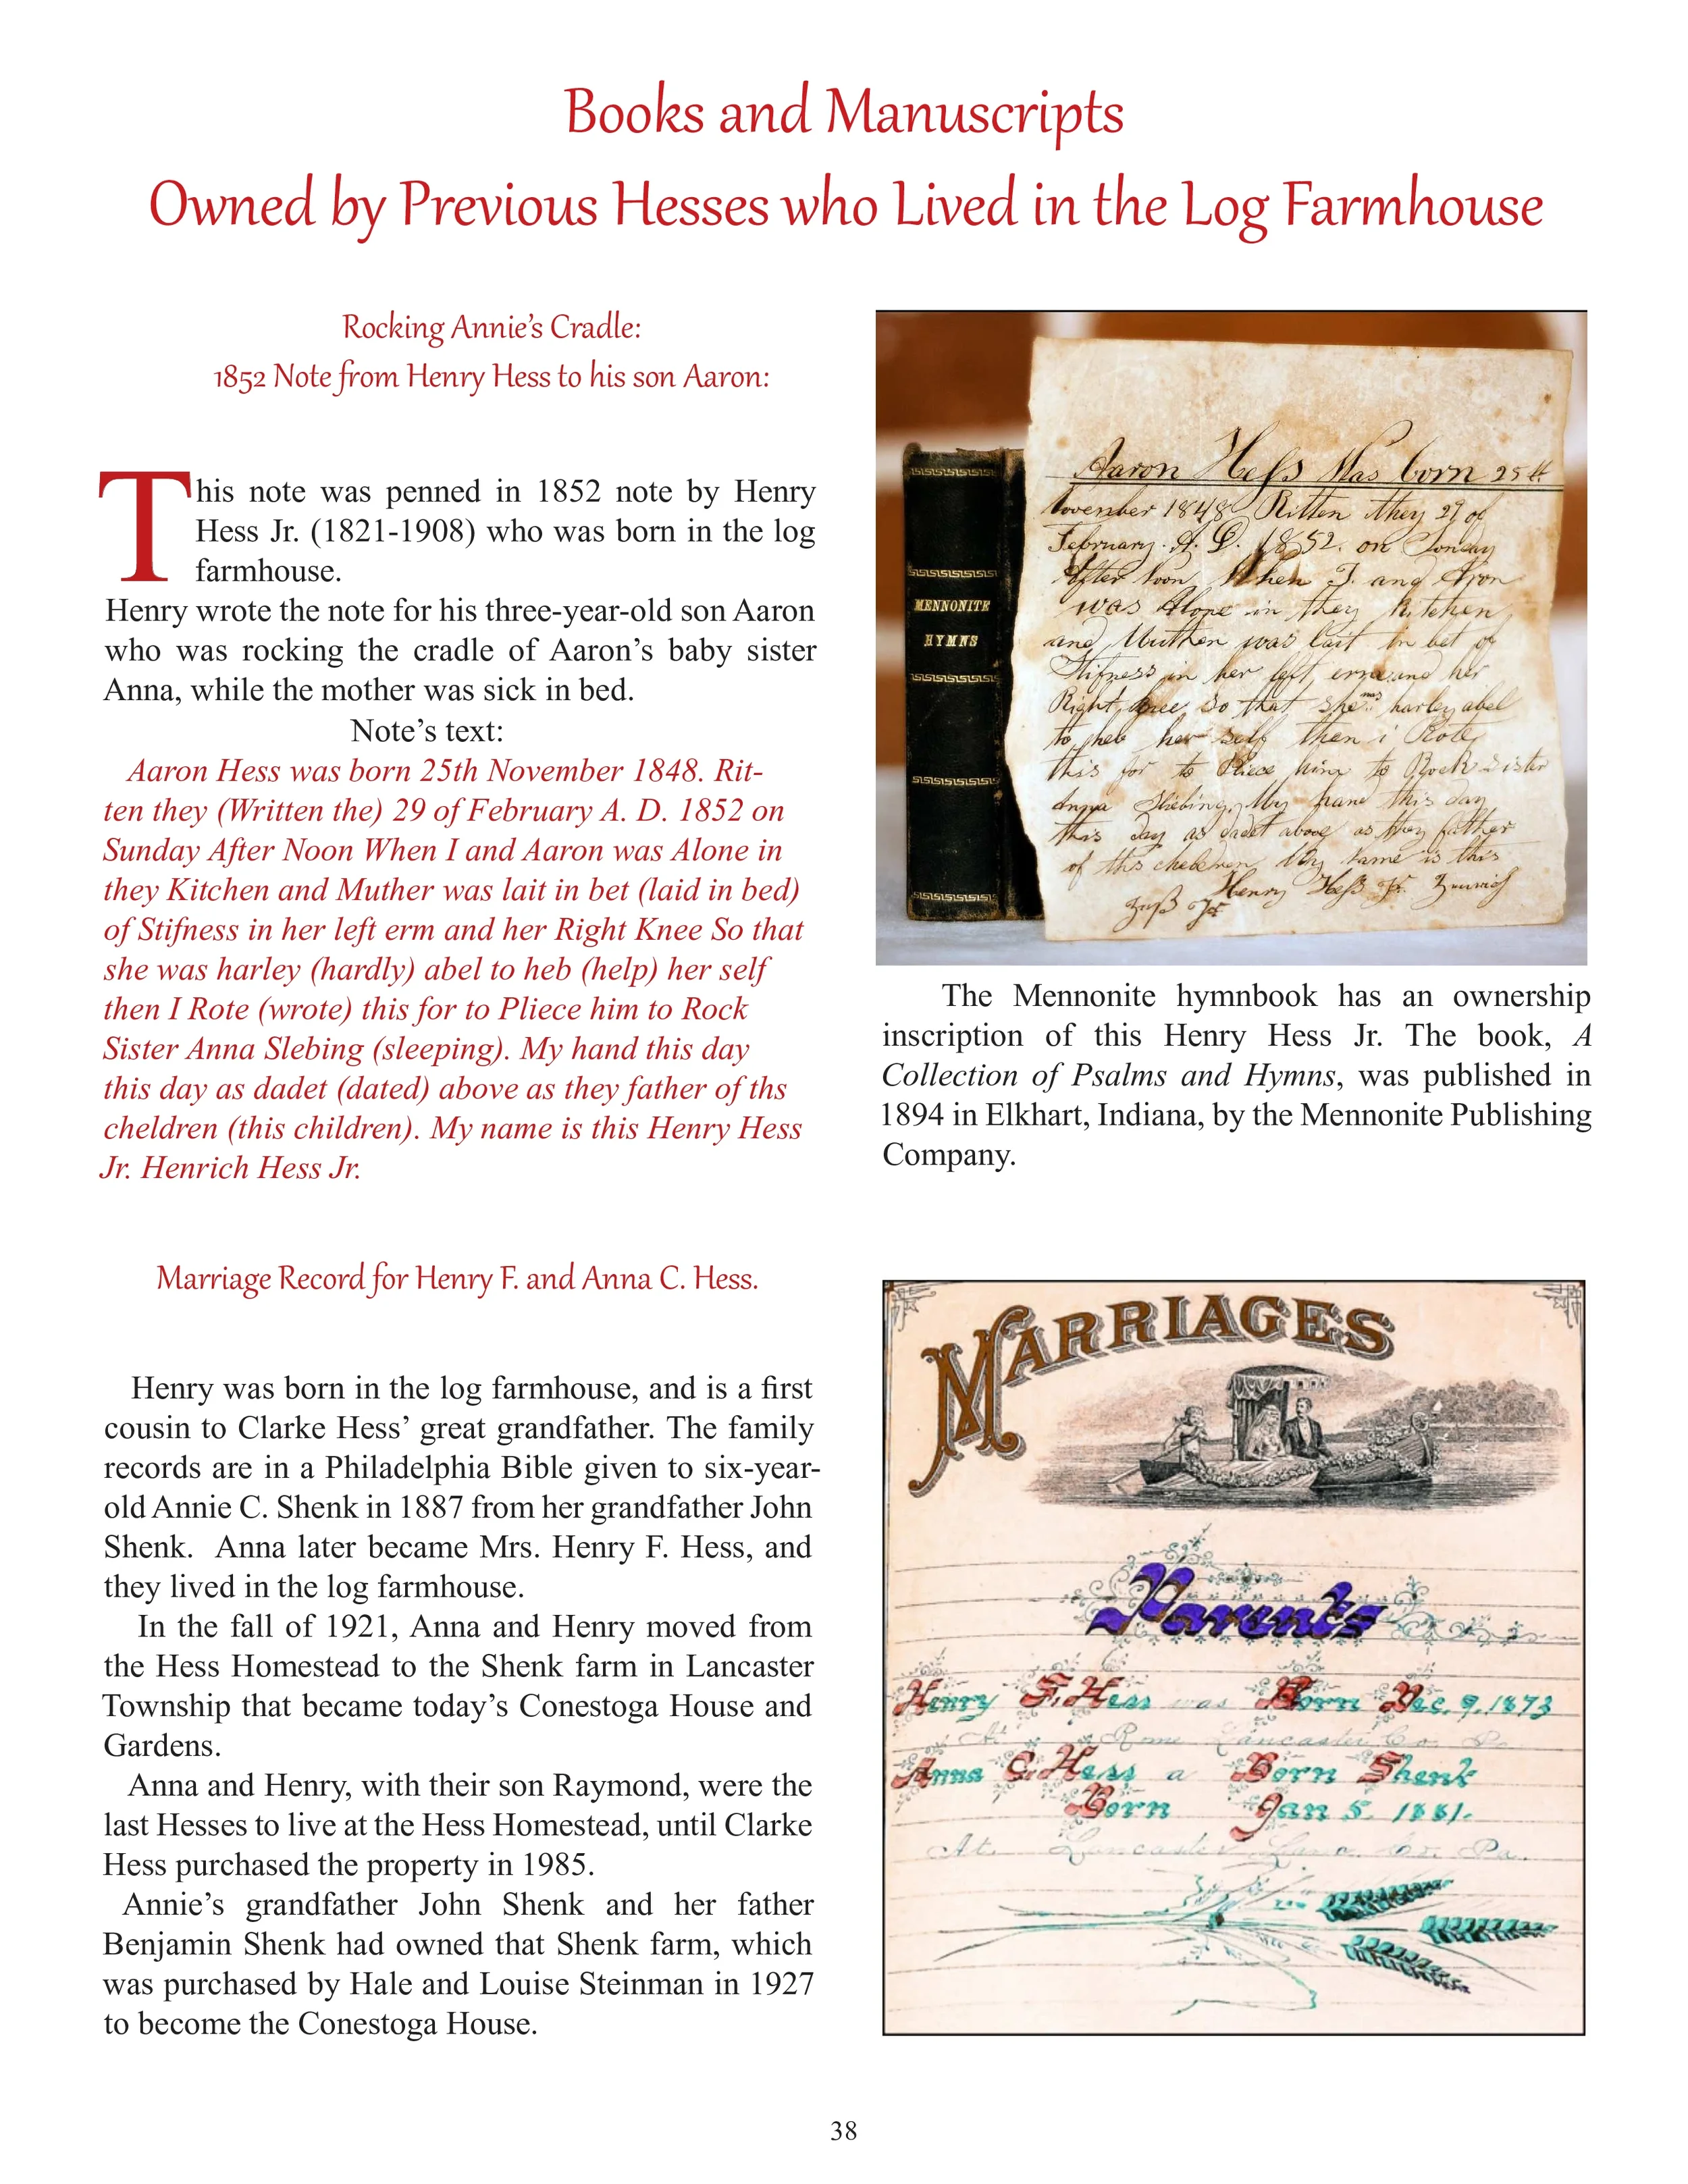 Books and Manuscripts
Owned by Previous Hesses who Lived in the Log Farmhouse
Rocking Annie's Cradle:
1852 Note from Henry Hess to his son Aaron:
This note was penned in 1852 note by Henry
Hess Jr. (1821-1908) who was born in the log
farmhouse.
Henry wrote the note for his three-year-old son Aaron
who was rocking the cradle of Aaron's baby sister
Anna, while the mother was sick in bed.
Note's text:
Aaron Hess was born 25th November 1848. Rit-
ten they (Written the) 29 of February A. D. 1852 on
Sunday After Noon When I and Aaron was Alone in
they Kitchen and Muther was lait in bet (laid in bed)
of Stifness in her left erm and her Right Knee So that
she was harley (hardly) abel to heb (help) her self
then I Rote (wrote) this for to Pliece him to Rock
Sister Anna Slebing (sleeping). My hand this day
this day as dadet (dated) above as they father of ths
cheldren (this children). My name is this Henry Hess
Jr. Henrich Hess Jr.
MENNONITE
HYMNS
Aaron Heſs Was born 25th
November 1848 Ritten they 29 of
February. A. D. 1852. on Sonday
After Noon When I and Aron
was Alone in they kitchen
and Muther was lait in bet of
Stifness in her left erm and her
Right knee So that she was harley abel
to heb her self then i Rote
this for to Pliece him to Rock Sister
Anna Slebing. My hand this day
this day as dadet above as they father
of this cheldren My Name is this
Henry Heſs Jr.
The Mennonite hymnbook has an ownership
inscription of this Henry Hess Jr. The book, A
Collection of Psalms and Hymns, was published in
1894 in Elkhart, Indiana, by the Mennonite Publishing
Company.
Marriage Record for Henry F. and Anna C. Hess.
Henry was born in the log farmhouse, and is a first
cousin to Clarke Hess' great grandfather. The family
records are in a Philadelphia Bible given to six-year-
old Annie C. Shenk in 1887 from her grandfather John
Shenk. Anna later became Mrs. Henry F. Hess, and
they lived in the log farmhouse.
In the fall of 1921, Anna and Henry moved from
the Hess Homestead to the Shenk farm in Lancaster
Township that became today's Conestoga House and
Gardens.
Anna and Henry, with their son Raymond, were the
last Hesses to live at the Hess Homestead, until Clarke
Hess purchased the property in 1985.
Annie's grandfather John Shenk and her father
Benjamin Shenk had owned that Shenk farm, which
was purchased by Hale and Louise Steinman in 1927
to become the Conestoga House.
MARRIAGES
Parents
Henry F. Hess was Born Dec. 9. 1873
At Rome Lancaster Co. Pa
Anna C. Hess a Born Shenk
Born Jan 5. 1881.
At Lancaster Lanc. Co. Pa.
38